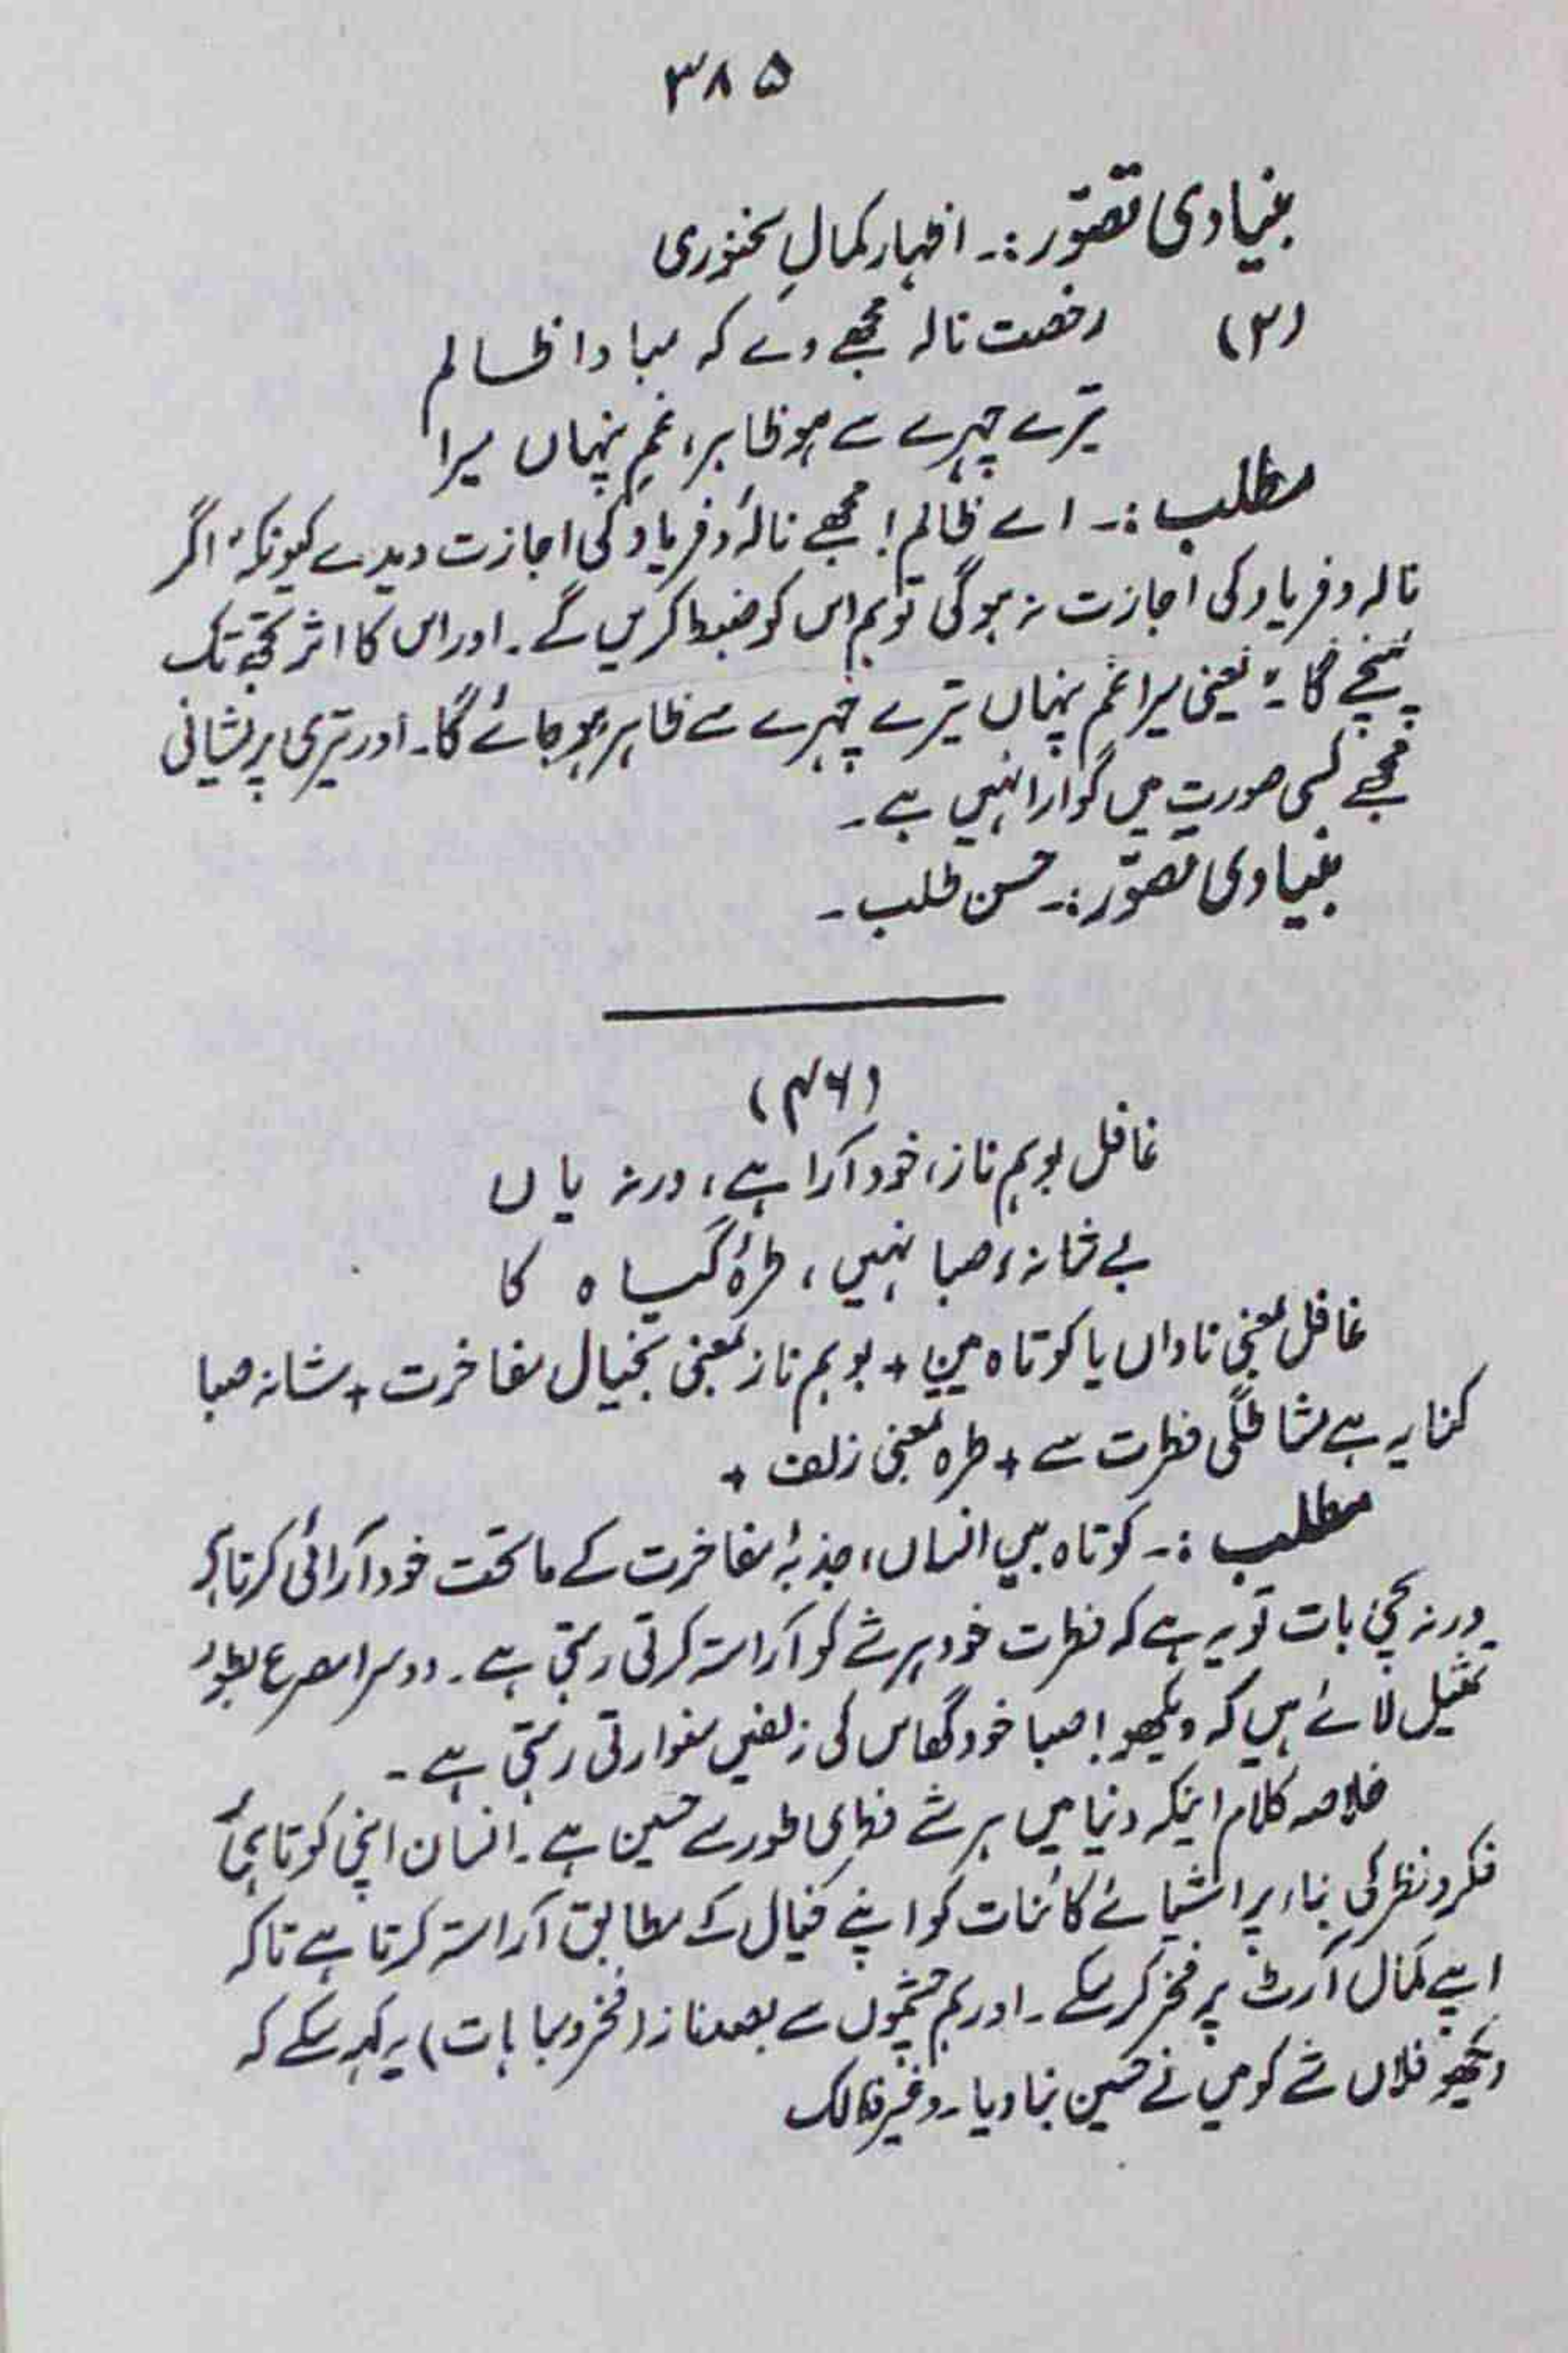 ۳۸۵
بنیادی تصوّر:۔ اظہار کمالِ سخنوری
(۳) رخصت نالہ مجھے دے کہ مبادا ظالم
تیرے چہرے سے ہو ظاہر، غمِ پنہاں میرا
مطلب:۔ اے ظالم! مجھے نالۂ و فریاد کی اجازت دیدے کیونکہ اگر
نالہ و فریاد کی اجازت نہ ہوگی تو ہم اس کو ضبط کریں گے۔ اور اس کا اثر تجھ تک
پہنچے گا۔ یعنی میرا غم پنہاں تیرے چہرے سے ظاہر ہو جائے گا۔ اور تیری پریشانی
مجھے کسی صورت میں گوارا نہیں ہے۔
بنیادی تصوّر:۔ حسن طلب۔
(۴۶)
غافل بوہم ناز، خود آرا ہے، ورنہ یاں
بے شانۂ صبا نہیں، طرۂ گیاہ کا
غافل بمعنی ناداں یا کوتاہ بین + بوہم ناز بمعنی بخیال مفاخرت + شانہ صبا
کنایہ ہے مشاطگی فطرت سے + طرہ بمعنی زلف +
مطلب:۔ کوتاہ بیں انساں، جذبۂ مفاخرت کے ماتحت خود آرائی کرتا ہے
ورنہ سچی بات تو یہ ہے کہ فطرت خود ہر شے کو آراستہ کرتی رہتی ہے۔ دوسرا مصرع بطور
تمثیل لائے ہیں کہ دیکھو! صبا خود گھاس کی زلفیں سنوارتی رہتی ہے۔
خلاصہ کلام اینکہ دنیا میں ہر شے فطری طور سے حسین ہے۔ انسان اپنی کوتاہیٔ
فکر و نظر کی بناء پر اشیائے کائنات کو اپنے خیال کے مطابق آراستہ کرتا ہے تاکہ
اپنے کمال آرٹ پر فخر کر سکے۔ اور ہم چشموں سے بصد ناز (فخر و مباہات) یہ کہہ سکے کہ
دیکھو فلاں شے کو میں نے حسین بنا دیا۔ وغیر ذالک